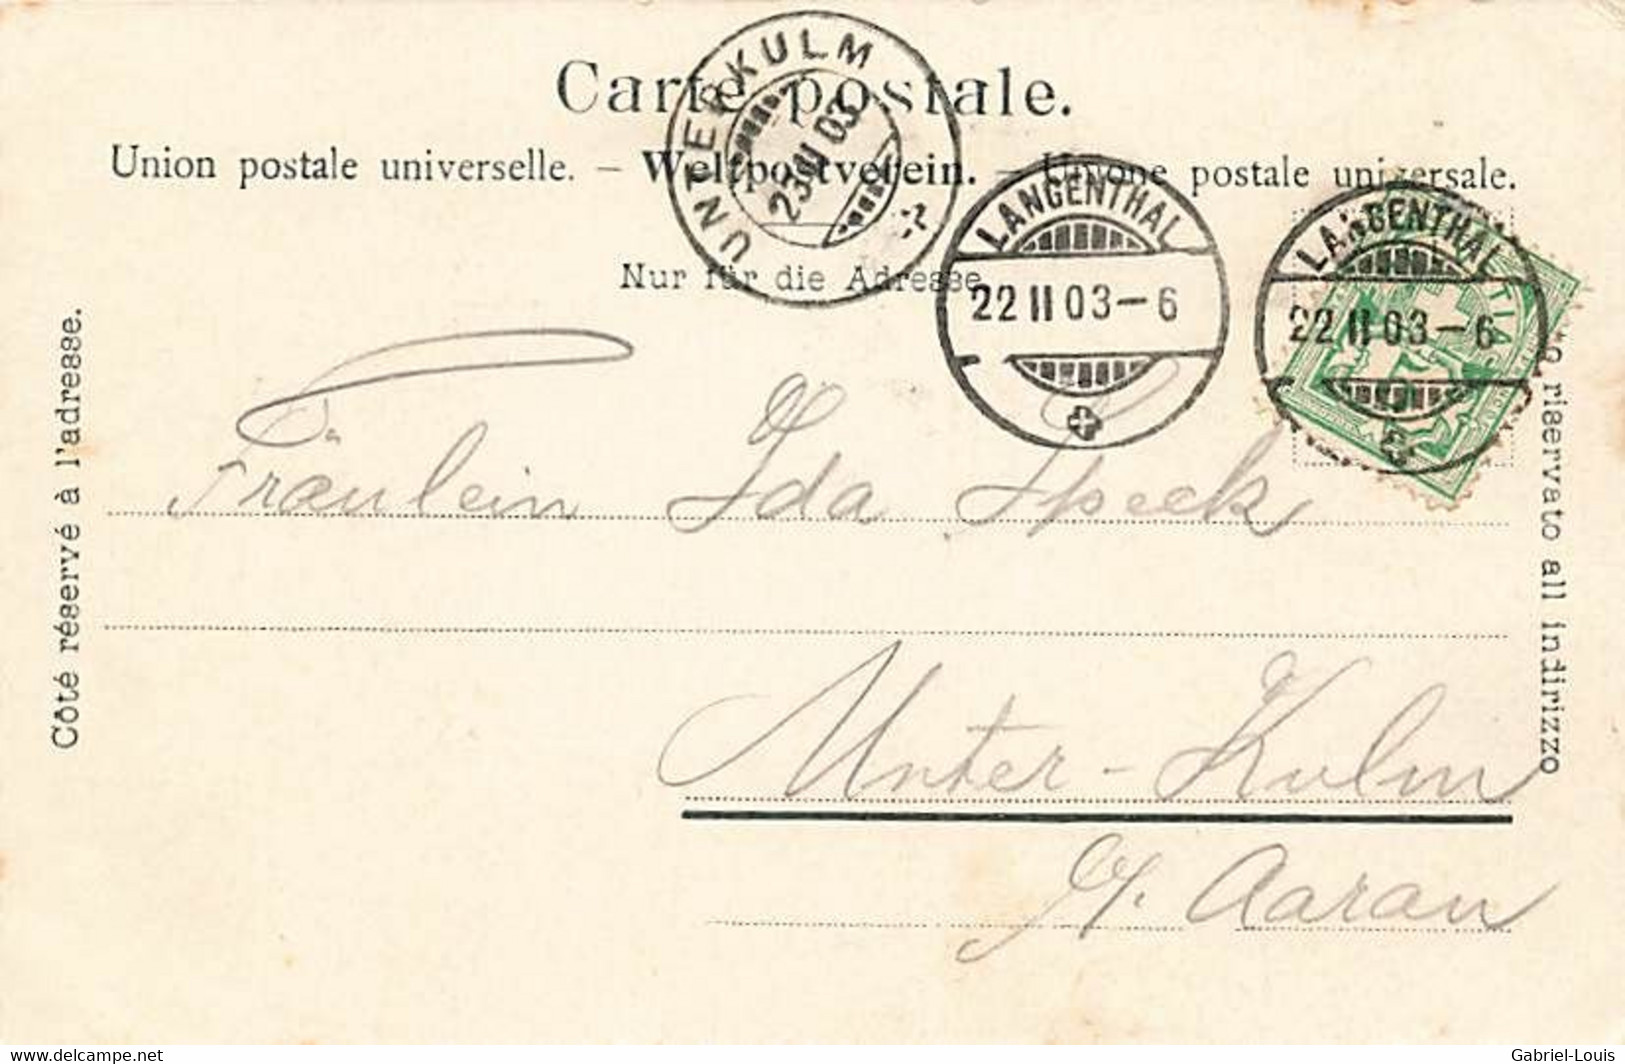 Carte postale.
Union postale universelle. – Weltpostverein. – Unione postale universale.
Nur für die Adresse
Côté réservé à l'adresse.
riservato all indirizzo
UNTERKULM
23 II 03
LANGENTHAL
22 II 03 – 6
LANGENTHAL
22 II 03 – 6
Fräulein Ida Speck
Unter-Kulm
Aarau
delcampe.net
Gabriel-Louis